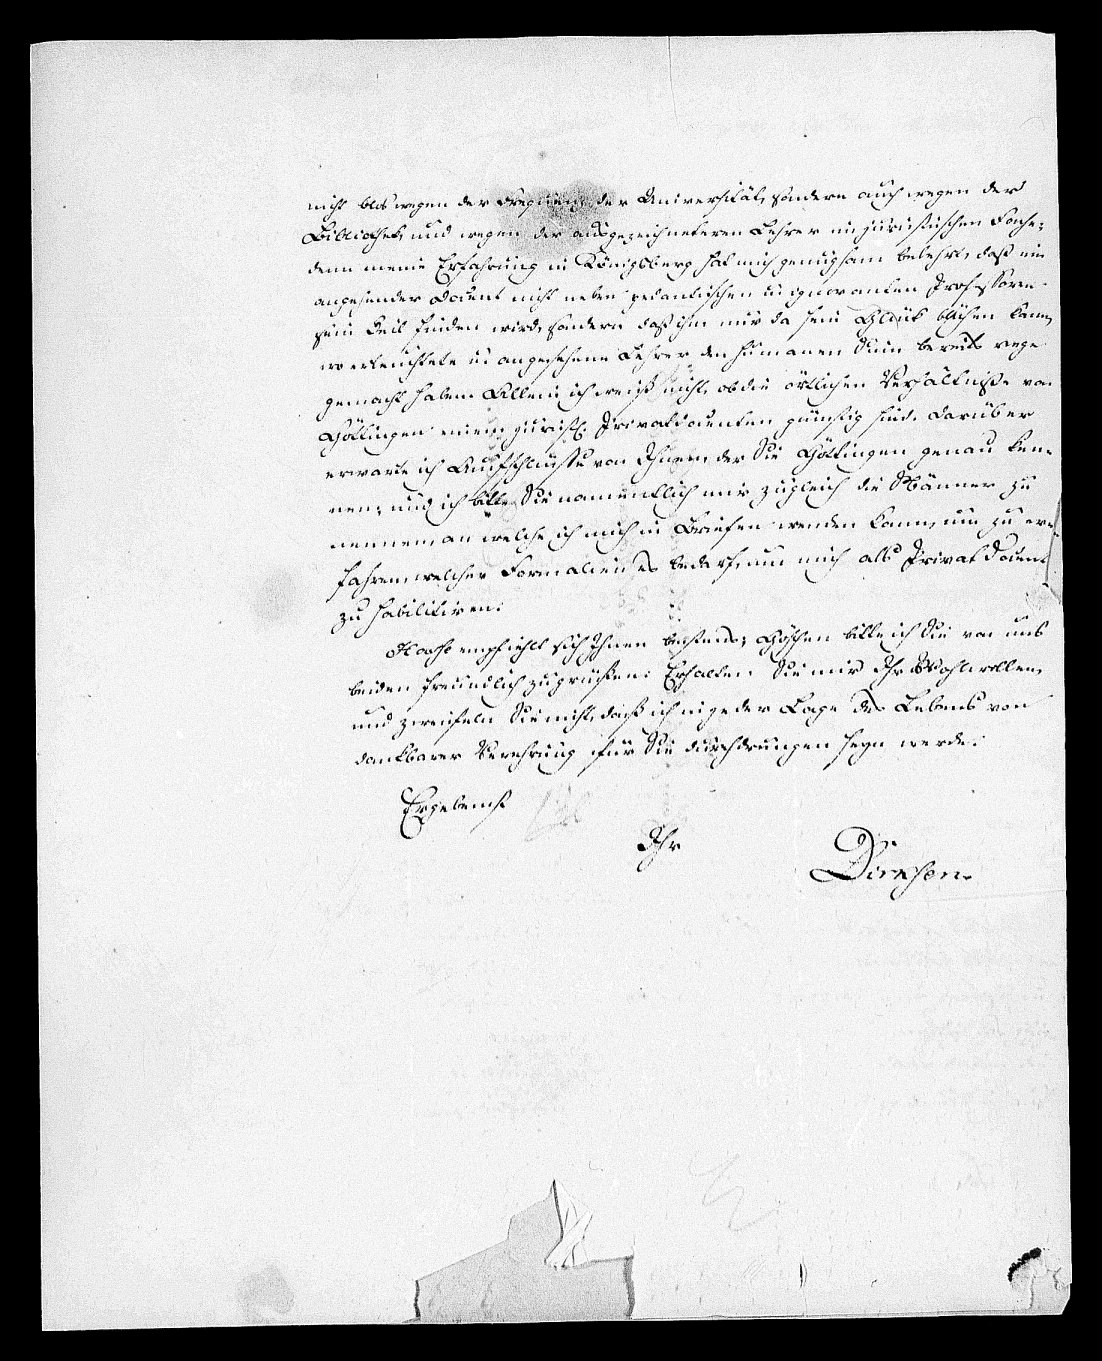 nicht blos wegen der Frequenz der Universität, sondern auch wegen der
Bibliothek, und wegen der ausgezeichneteren Lehrer im juristischen Fache;
denn meine Erfahrung in Königsberg hat mich genugsam belehrt, daß ein
angehender Docent nicht neben pedantischen u. ignoranten Professoren
sein Heil finden wird, sondern daß ihm nur da sein Glück blühen kann,
wo erleuchtete u. angesehene Lehrer den humanen Sinn bereits rege
gemacht haben. Allein ich weiß nicht, ob die örtlichen Verhältniße von
Göttingen einem jurist. Privatdocenten günstig sind. Darüber
erwarte ich Aufschlüsse von Ihnen, der Sie Göttingen genau ken-
nen; und ich bitte Sie namentlich mir zugleich die Männer zu
nennen, an welche ich mich in Briefen wenden kann, um zu er-
fahren, welcher Formalien es bedarf, um mich als Privat Docent
zu habilitiren.
Hasse empfiehlt sich Ihnen bestens; Göschen bitte ich Sie von uns
beiden freundlich zu grüßen. Erhalten Sie mir Ihr Wohlwollen,
und zweifeln Sie nicht, daß ich in jeder Lage des Lebens von
dankbarer Verehrung für Sie durchdrungen seyn werde.
Ergebenst
Ihr
Dirksen.